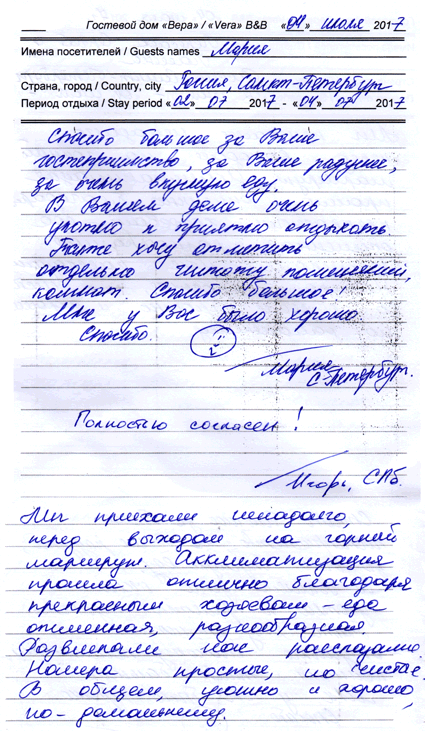 Гостевой дом «Вера» / «Vera» B&B «04» июля 2017
Имена посетителей / Guests names Мария
Страна, город / Country, city Россия, Санкт-Петербург
Период отдыха / Stay period «02» 07 2017 - «04» 07 2017
Спасибо большое за Ваше
гостеприимство, за Ваше радушие,
за очень вкусную еду.
В Вашем доме очень
уютно и приятно отдыхать.
Также хочу отметить
отдельно чистоту помещений,
комнат. Спасибо большое!
Мне у Вас было хорошо
Спасибо.
Мария,
С-Петербург.
Полностью согласен!
Игорь, СПб.
Мы приехали ненадолго,
перед выходом на горный
маршрут. Акклиматизация
прошла отлично благодаря
прекрасным хозяевам – еда
отменная, разнообразная.
Развлекали нас рассказами.
Номера простые, но чистые.
В общем, уютно и хорошо,
по-домашнему.